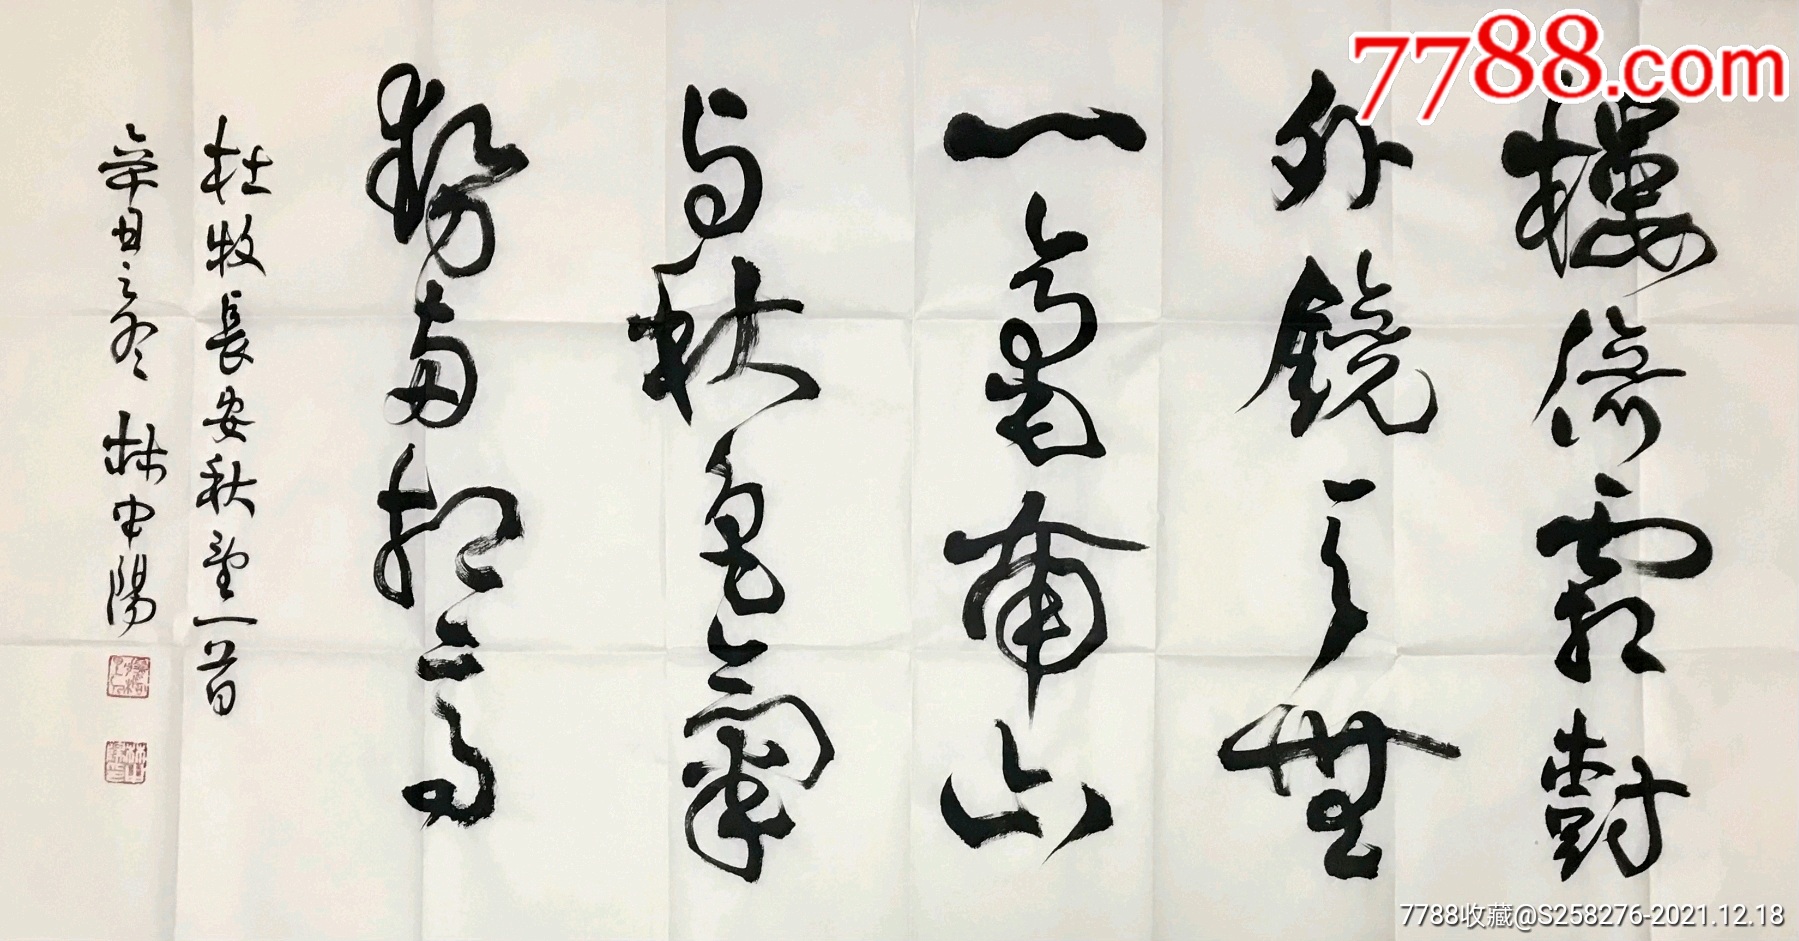 樓倚霜樹
外鏡天無
一毫南山
与秋色氣
勢兩相高
杜牧長安秋望一首
辛丑之冬 林中陽
7788.com
7788收藏@S258276-2021.12.18